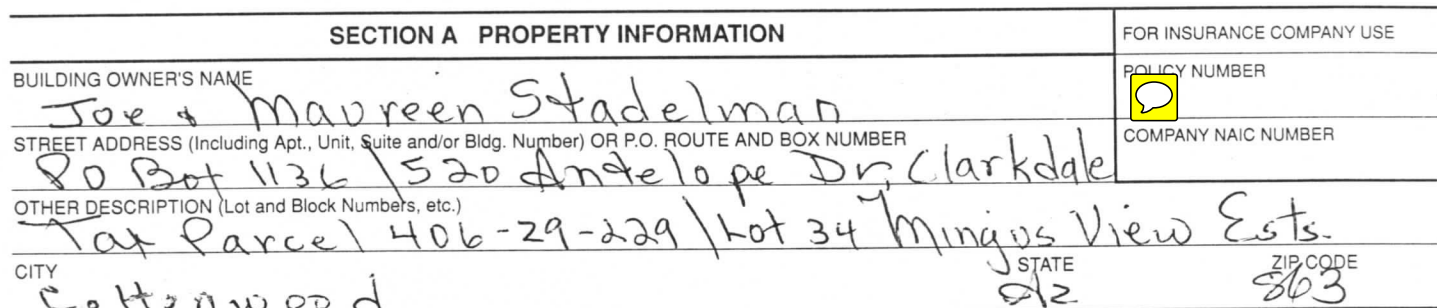 SECTION A PROPERTY INFORMATION
FOR INSURANCE COMPANY USE
BUILDING OWNER'S NAME
Joe & Maureen Stadelman
POLICY NUMBER
STREET ADDRESS (Including Apt., Unit, Suite and/or Bldg. Number) OR P.O. ROUTE AND BOX NUMBER
PO Box 1136 \ 520 Antelope Dr, Clarkdale
COMPANY NAIC NUMBER
OTHER DESCRIPTION (Lot and Block Numbers, etc.)
Tax Parcel 406-29-229 \ Lot 34 Mingus View Ests.
CITY
STATE
ZIP CODE
Cottonwood
Az
863